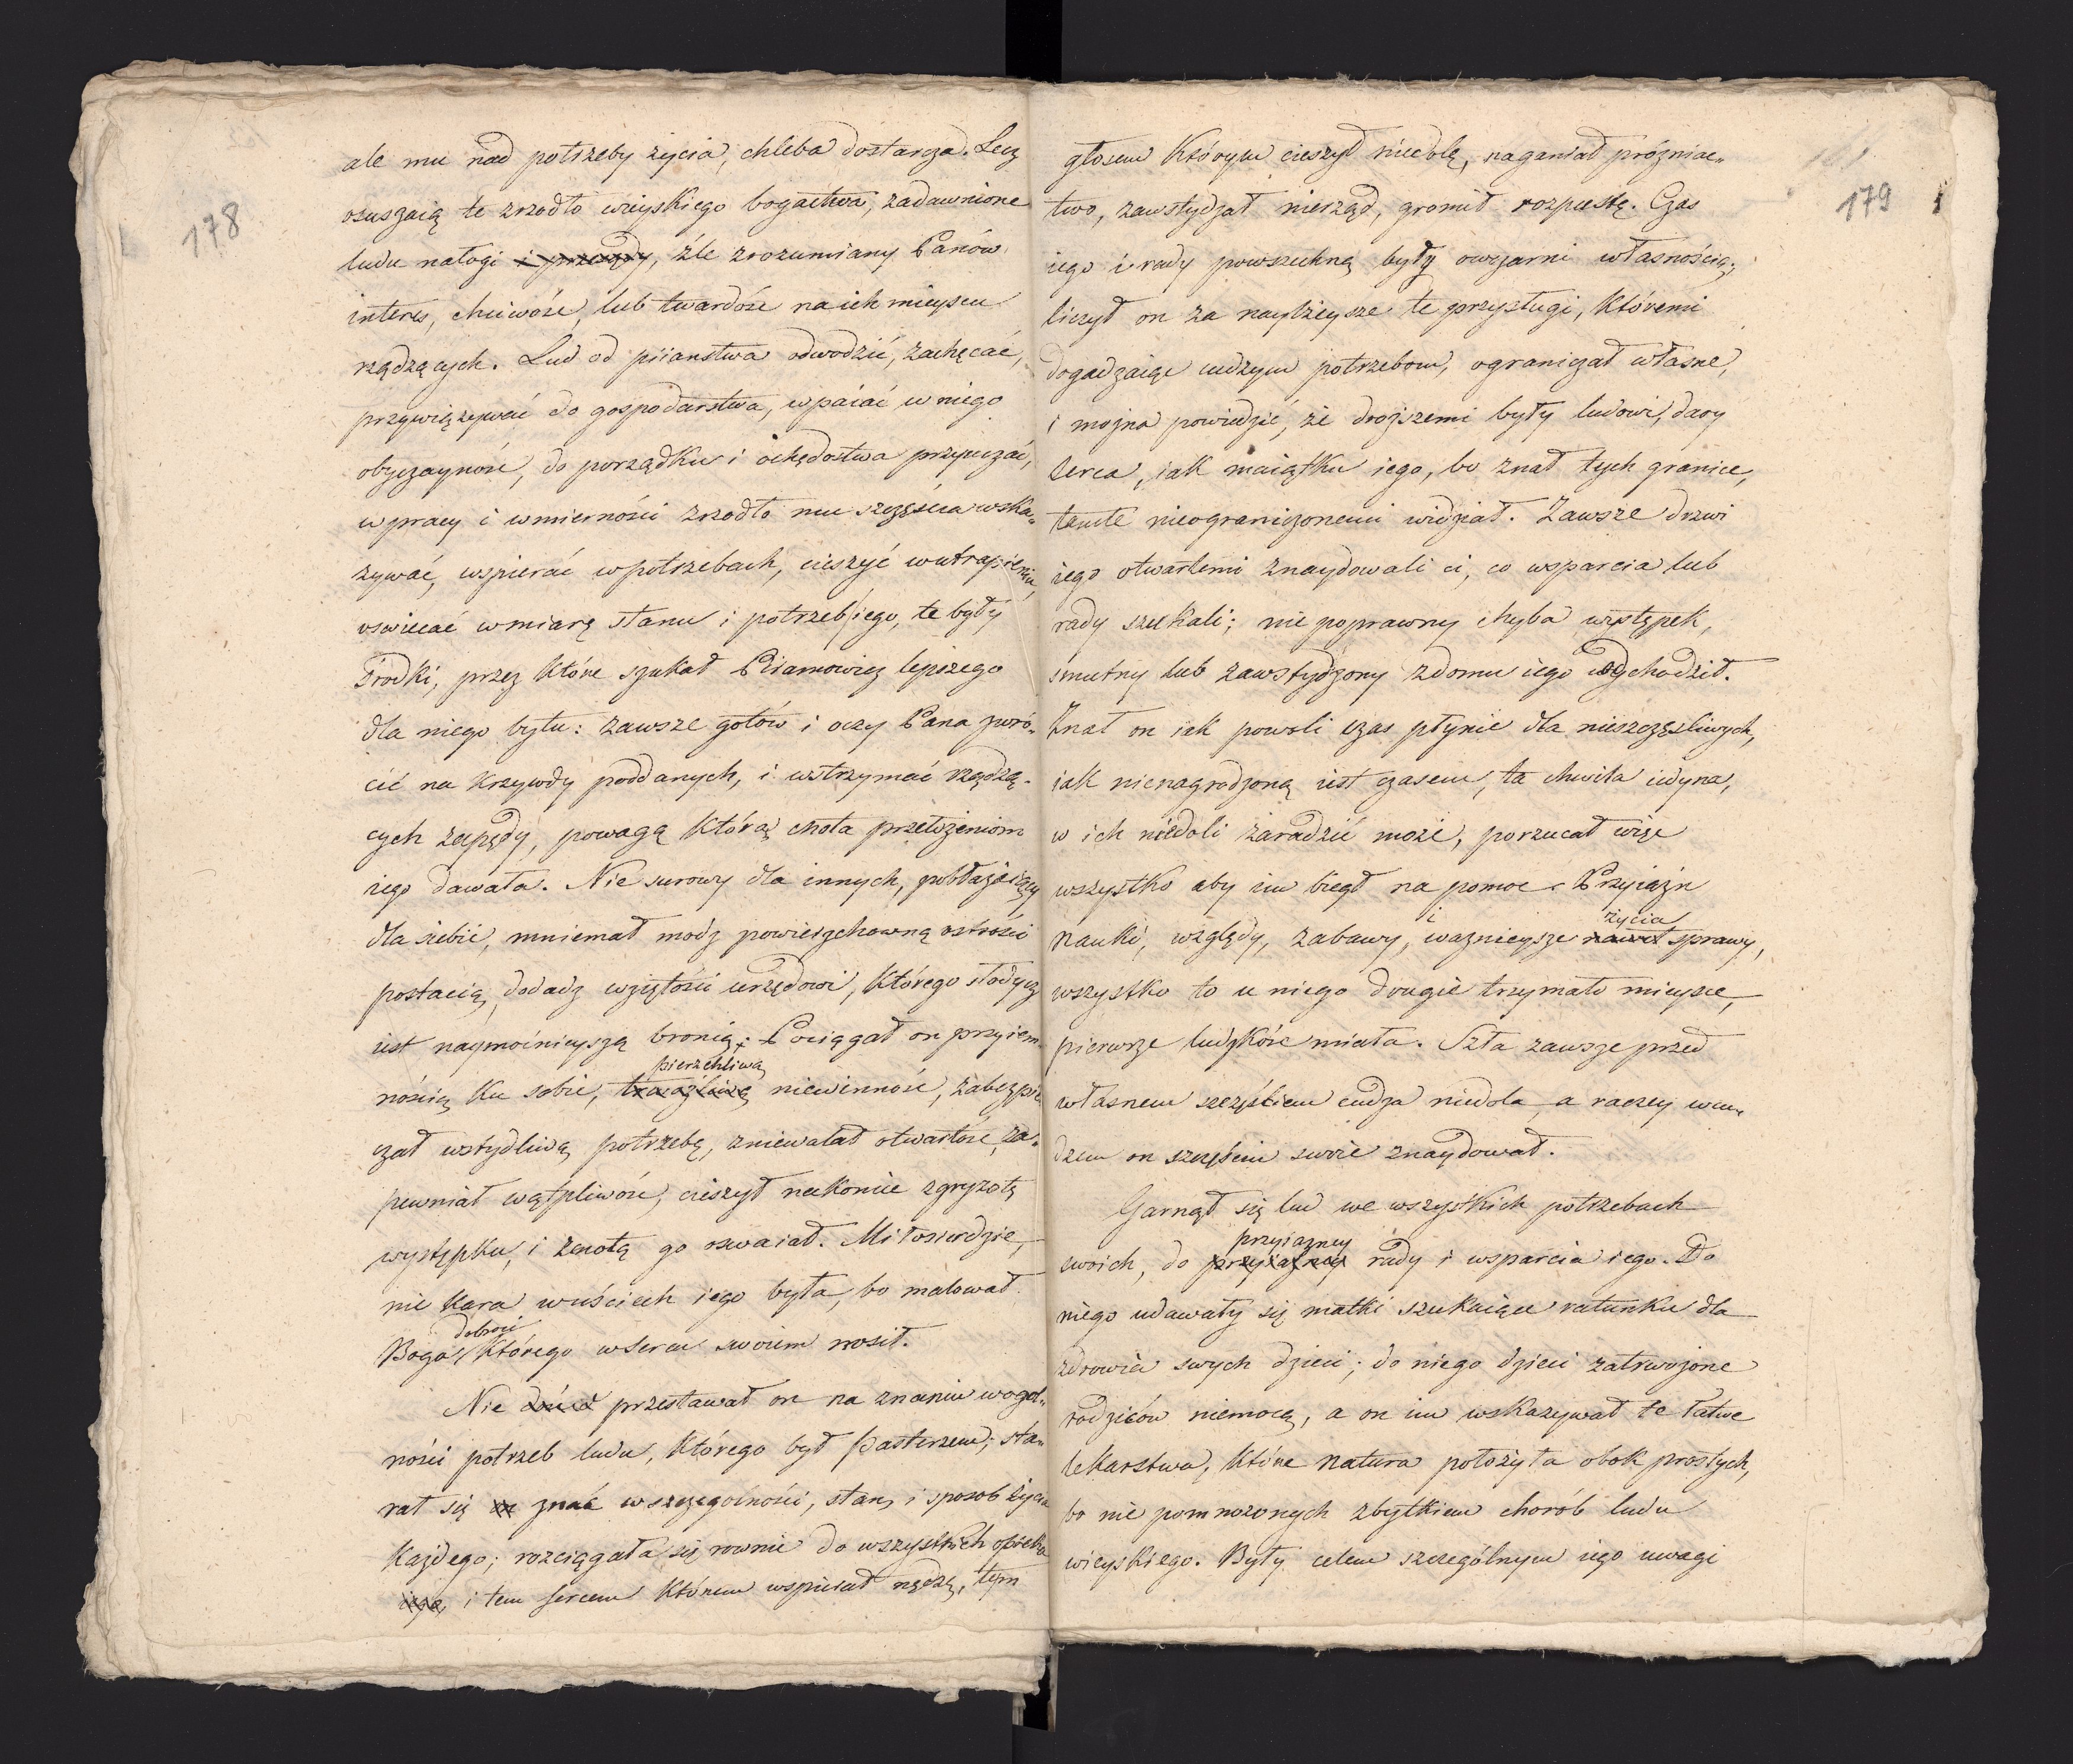 178
ale mu nad potrzeby życia, chleba dostarcza. Lecz
osuszaią te zrzodło wieyskiego bogactwa, zadawnione
ludu nałogi i przesądy, źle zrozumiany Panów
interes, chciwość, lub twardość na ich mieyscu
rządzących. Lud od piianstwa odwodzić, zachęcać,
przywiązywać do gospodarstwa, wpaiać w niego
obyczayność, do porządku i ochędostwa przyuczać,
w pracy i w mierności zrzodło mu szczęścia wska„
zywać, wspierać w potrzebach, cieszyć w utrapieniu,
oswiecać w miarę stanu i potrzeb iego, te były
środki, przez które szukał Piramowicz lepszego
dla niego bytu: zawsze gotów i oczy Pana zwró„
cić na krzywdy poddanych, i wstrzymać rządzą„
cych zapędy, powagą którą cnota przełożeniom
iego dawała. Nie surowy dla innych, pobłażaiący
dla siebie, mniemał módz powierzchowną ostrości
postacią, dodadz wziętości urzędowi, którego słodycz
iest naymocnieyszą bronią. Pociągał on przyiem„
pierzchliwą
nością ku sobie, trwożliwą niewinność, zabezpie„
czał wstydliwą potrzebę, zniewalał otwartość, za„
pewniał wątpliwość, cieszył nakoniec zgryzotę
występku, i z cnotą go oswaiał. Miłosierdzie,
nie kara w uściech iego była, bo malował
dobroci
Boga którego w sercu swoiem nosił.
Nie przestawał on na znaniu w ogol„
ności potrzeb ludu, którego był pasterzem; sta„
rał się znać w szczegolności, stan, i sposob życia
każdego; rozciągała się rownie do wszystkich opieka
iego i tem sercem którem wspierał nędzę, tym
179
głosem którym cieszył niedolę, naganiał prózniac„
two, zawstydzał nierząd, gromił rozpustę. Czas
iego i rady powszechną były owczarni własnością;
liczył on za naylżeysze te przysługi, któremi
dogadzaiąc cudzym potrzebom, ograniczał własne,
i mozna powiedzić, że droższemi były ludowi, dary
serca, iak maiątku iego, bo znał tych granice,
tamte nieograniczonemi widział. Zawsze drzwi
iego otwartemi znaydowali ci, co wsparcia lub
rady szukali; nie poprawny chyba występek,
smutny lub zawstydzony z domu iego odchodził.
Znał on iak powoli czas płynie dla nieszczęsliwych,
iak nienagrodzoną iest czasem, ta chwila iedyna,
w ich niedoli zaradzić może, porzucał więc
wszystko aby im biegł na pomoc. Przyiaźn
i życia
nauki, względy, zabawy, waznieysze nawet sprawy,
wszystko to u niego drugie trzymało mieysce,
pierwsze ludzkość miała. Szła zawsze przed
własnem szczęściem cudza niedola, a raczey w cu„
dzem on szczęściu swoie znaydował.
Garnął się lud we wszystkich potrzebach
przyiazney
swoich, do przyiazney rady i wsparcia iego. Do
niego udawały się matki szukaiące ratunku dla
zdrowia swych dzieci; do niego dzieci zatrwożone
rodziców niemocą, a on im wskazywał te łatwe
lekarstwa, które natura położyła obok prostych,
bo nie pomnozonych zbytkiem chorób ludu
wieyskiego. Były celem szczególnym iego uwagi